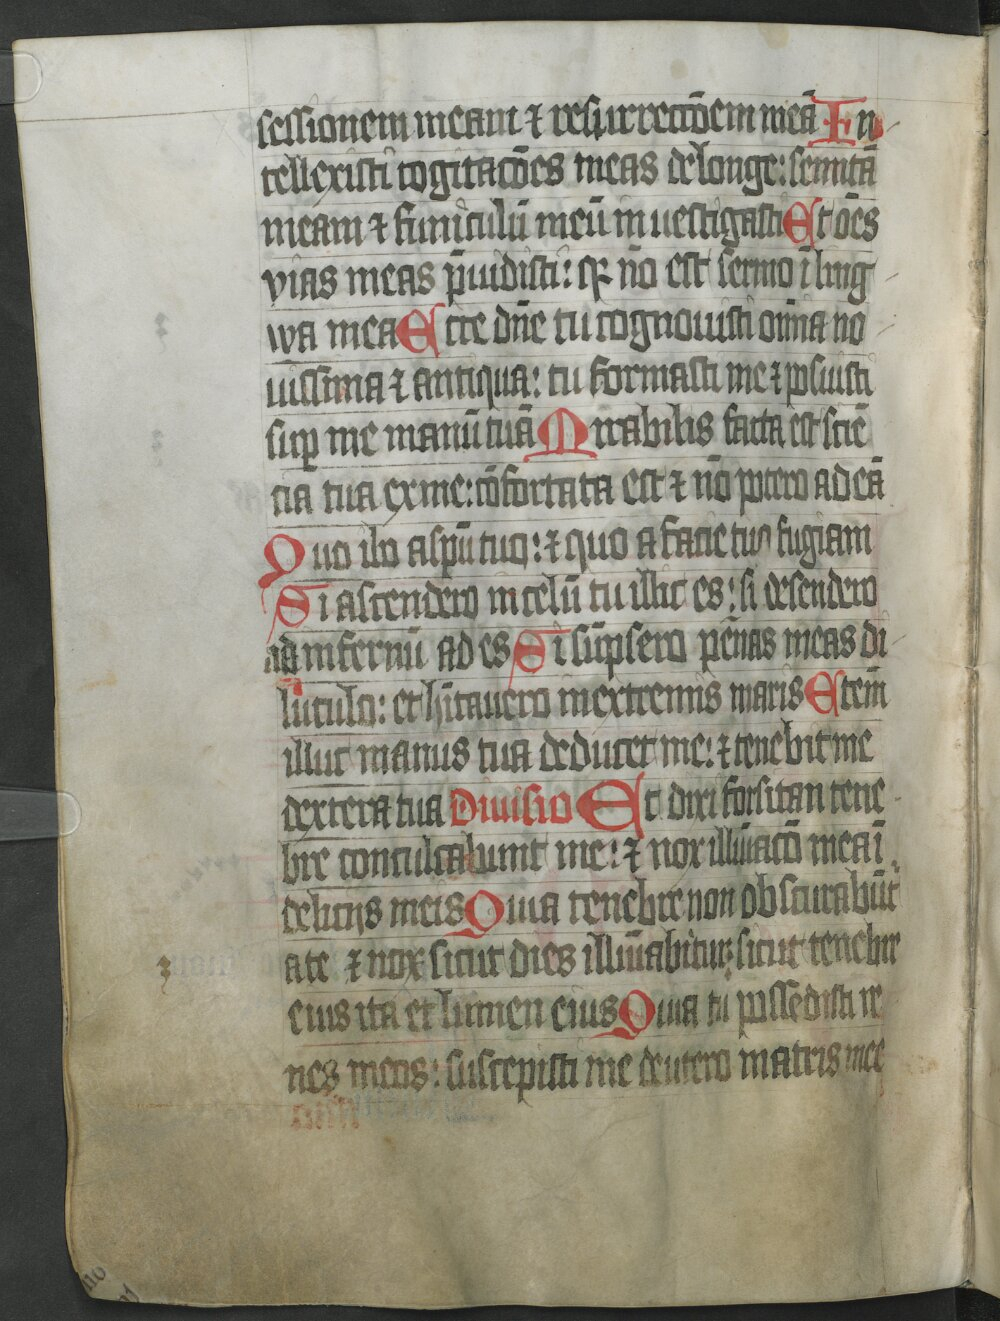 sessionem meam ⁊ resurrectōem meā In
tellexisti cogitacōes meas de longe: semitā
meam ⁊ funiculū meū in uestigasti Et oēs
vias meas p̄uidisti: qꝛ nō est sermo ī ling
wa mea Ecce dn̄e tu cognouisti omīa no
uissima ⁊ antiqua: tu formasti me ⁊ posuisti
sup me manū tuā Mirabilis facta est sciē
cia tua ex me: cōfortata est ⁊ nō potero ad eā
Quo ibo a spū tuo: ⁊ quo a facie tuo fugiam
Si ascendero in celū tu illic es: si desendero
ad infernū ad es Si sūpsero pēnas meas di
luculo: et hītauero in extremis maris Etem̄
illuc manus tua deducet me: ⁊ tenebit me
dextera tua Diuisio Et dixi forsitan tene
bre conculcabunt me: ⁊ nox illūiacō mea ī
delicijs meis Quia tenebre non obscurabūt
a te ⁊ nox sicut dies illūiabitur: sicut tenebre
eius ita et lumen eius Quia tu possedisti re
nes meos: suscepisti me de utero matris mee